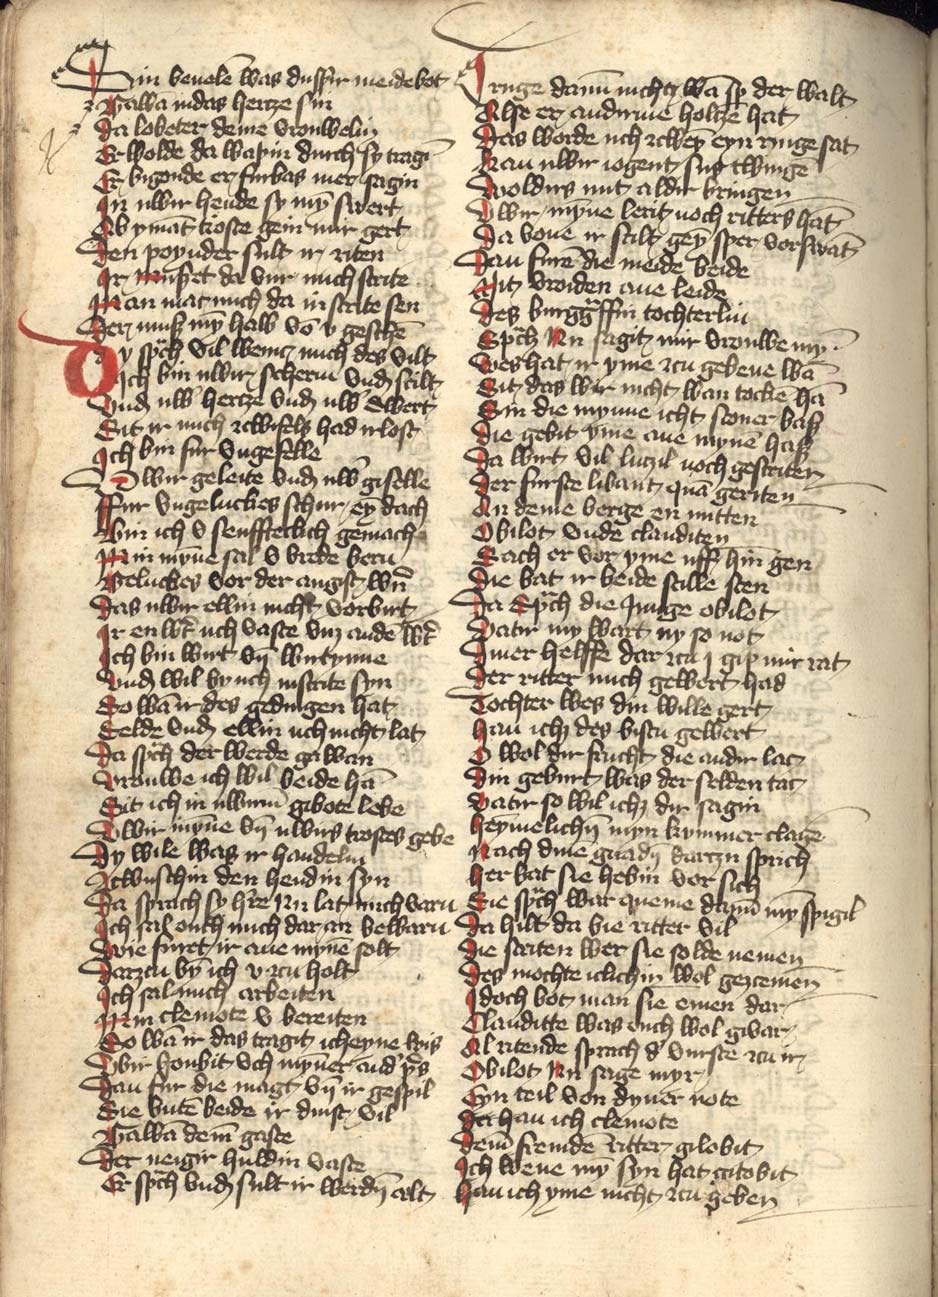 Sin beuelē was disir meide bot
Gawā in das hertze sin
Da lobeter deme vrouwelin
Er wolde da wapin durch sy tragī
Er bigonde er furbas mer sagin
In uwir hende sy myn swert
Ob ymāt tioste gein mir gert
Den poynder sult ir riten
Ir mußet da vur mich strite
Man mac mich da in strite sen
Der muß myn halb vō v geschē
Sy spch vil wenic mich des vilt
Ich bin uwir scherm vnd schilt
Vnd uwir hertze vnd uwir swert
Sit ir mich zcwifels had irlost
Ich bin fur vngefelle
Vwir geleite vnd uwir giselle
Ffur vngeluckes schur eyn dach
Bin ich v senffteclich gemach
Min mynne sal v vrede bern
Geluckes vor der angist wern
Das uwir ellin nicht vorbirt
Ir en wert uch vaste vntz an dē wirt
Ich bin wirt vn wirtynne
Vnd wil by uch in strite syn
So wā ir des gedingen hat
Selde vnd ellin uch nicht lat
Da spch der werde gawan
Vrouwe ich wil beide hā
Sit ich in uwirm gibote lebe
Vwir mynne vn uwirs trostes gebe
Dy wile was ir handelin
Zcwuschin den hendin syn
Da sprach sy h're nu lat mich varn
Ich sal ouch mich dar an bewarn
Wie furet ir ane myne solt
Darzcu byn ich v zcu holt
Ich sal mich arbeiten
Min clenote v bereiten
So wā ir das tragit icheyne wis
Vbir houbit uch nymer and' pris
Dan fur die magt vn ir gespil
Sie buten beide ir dinst vil
Gawā dem gaste
Der neigir huldin vaste
Er spch vnd sult ir werdin alt
Truge dann nichtz wā sper der walt
Alse er andirme holtze hat
Das worde uch zcwen eyn ringe sat
Kan uwir iogent sus twinge
Woldirs mit aldir bringen
Vwir mynne lerit noch ritters hāt
Da bone ir schilt gein sper vorswāt
Dan furē die meide beide
Mit vroiden ane leide
Des burggraffin tochterlin
Spch nu sagit mir vrouwe myn
Wes hat ir yme zcu gebene wā
Sit das wir nicht wan tocke hā
Sin die mynne icht schoner bas
Die gebit yme ane mynē has
Da wirt vil lutzil noch gestriten
Der furste libaut quā geriten
An deme berge en mitten
Obilot vnde clauditen
Sach er vor yme uff hin gen
Die bat ir beide stille sten
Da spch die iunge obilot
Vatir my wart ny so not
Diner helffe dar zcu gip mir rat
Der ritter mich gewert had
Tochter wes din wille gert
Han ichz des bistu gewert
O wol dir frucht die an dir lac
Din geburt was der selden tac
Vatir so wil ichz dir sagin
Heymelichen myn kummer clage
Nach dinē gnadin dartzu sprich
Her bat sie hebin vor sich
Sie spch war queme dann my spigil
Da hilt da bie ritter vil
Die striten wer sie solde nemen
Des mochte iclichin wol gezcemen
Idoch bot man sie einen dar
Clauditte was ouch wol givar
Al ritende sprach d' vurste zcu ir
Obilot nu sage myr
Eyn teil von dyner note
Da han ich clenote
Dem fremde ritter gilobit
Ich wene my syn hat gitobit
Han ich yme nicht zcu geben